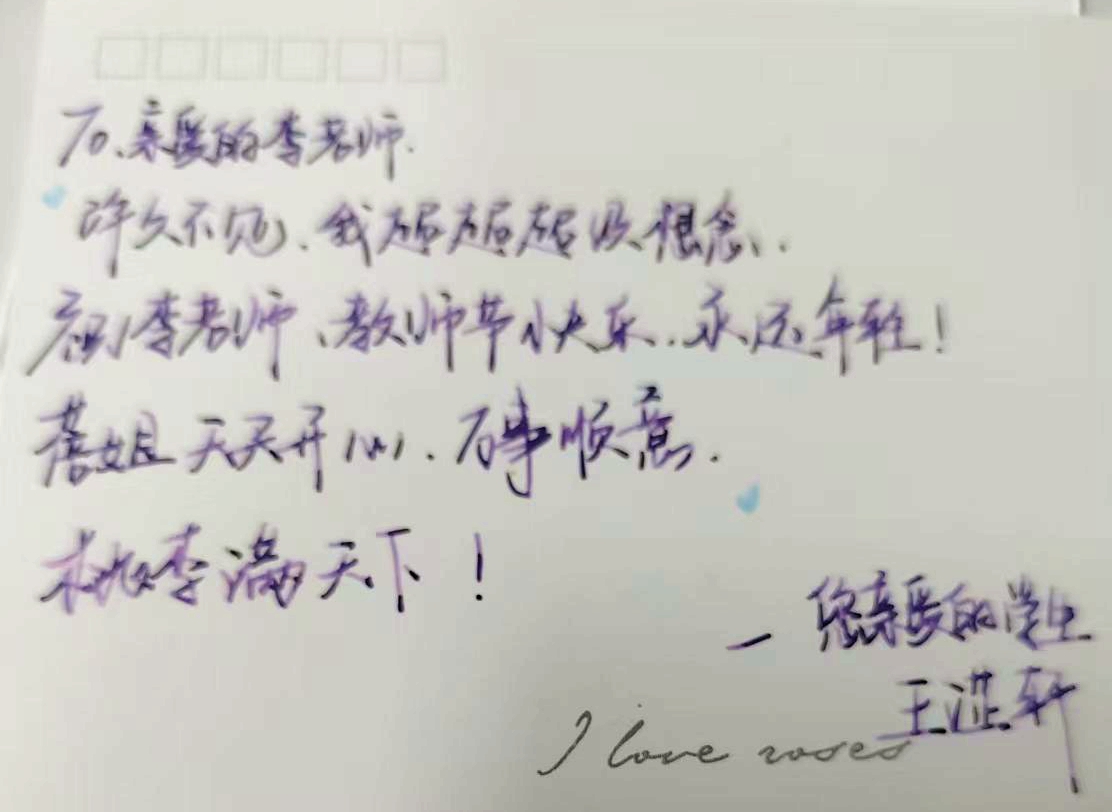 To、亲爱的李老师.
许久不见、我超超超级想念、.
祝李老师、教师节快乐、永远年轻!
蓓姐天天开心、万事顺意.
桃李满天下!
— 您亲爱的学生
王 轩
I love roses